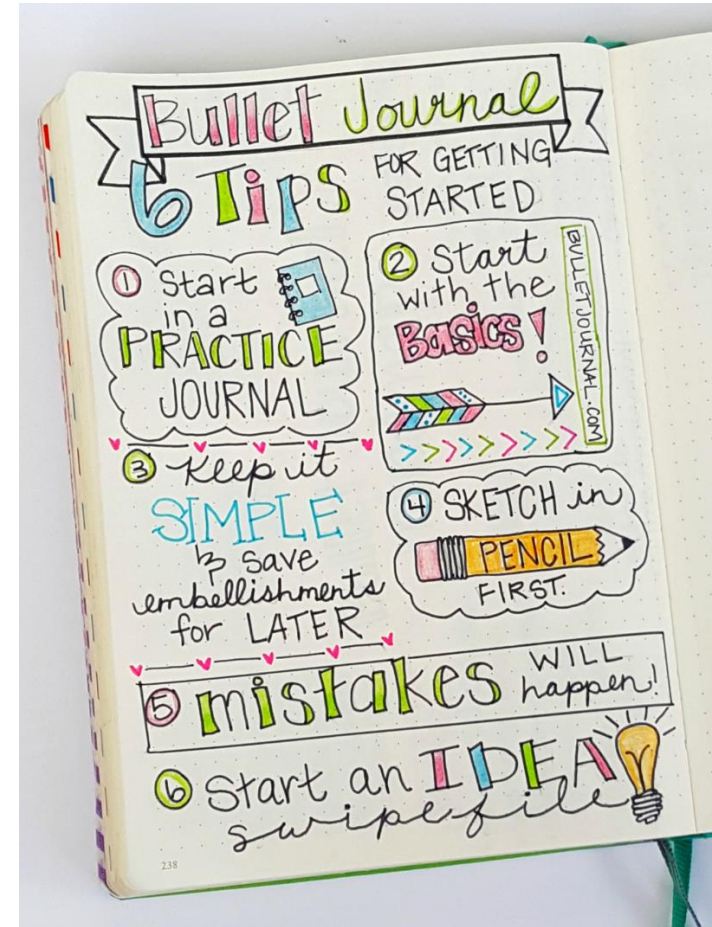 Bullet Journal
6 Tips FOR GETTING
STARTED
1 Start
in a
PRACTICE
JOURNAL
2 Start
with the
Basics!
BULLETJOURNAL.COM
3 Keep it
SIMPLE
& save
embellishments
for LATER
4 SKETCH in
PENCIL
FIRST.
5 mistakes WILL
happen!
6 Start an IDEA
swipe file
238